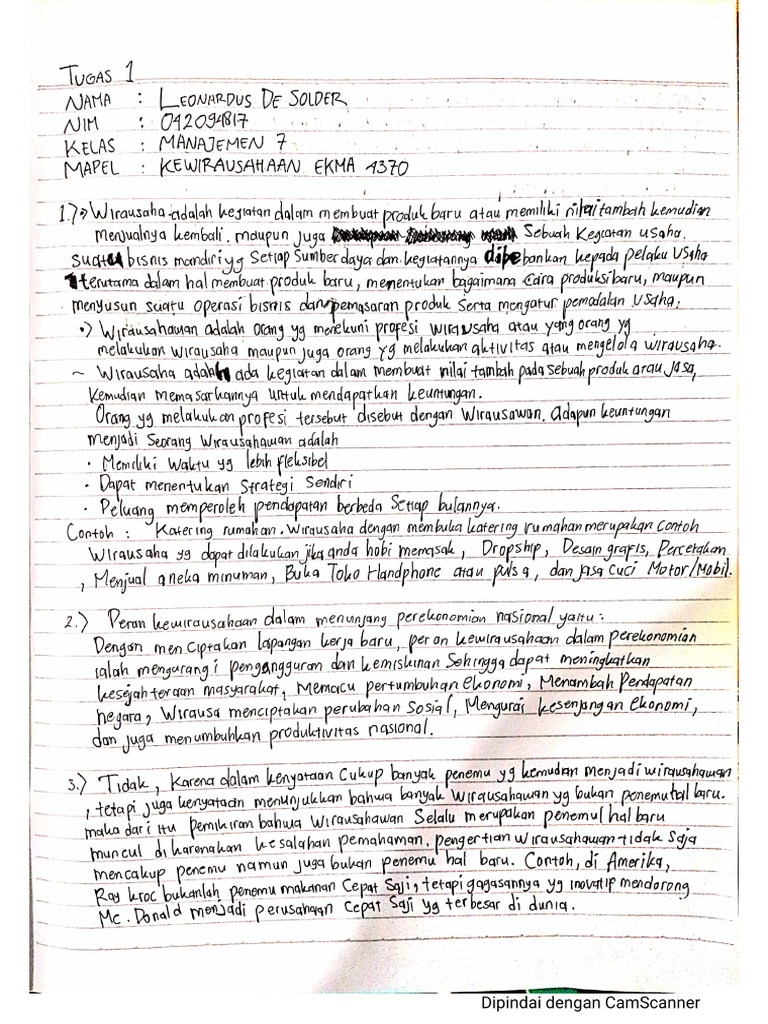 TUGAS 1
NAMA : LEONARDUS DE SOLDER
NIM : 042094817
KELAS : MANAJEMEN 7
MAPEL : KEWIRAUSAHAAN EKMA 4370
1.) •) Wirausaha adalah kegiatan dalam membuat produk baru atau memiliki nilai tambah kemudian
menjualnya kembali. maupun juga Sebuah Kegiatan usaha.
suatu bisnis mandiri yg Setiap Sumber daya dan kegiatannya dibebankan kepada pelaku usaha
terutama dalam hal membuat produk baru, menentukan bagaimana cara produksi baru, maupun
menyusun suatu operasi bisnis dan pemasaran produk serta mengatur pemodalan usaha.
•) Wirausahawan adalah orang yg menekuni profesi wirausaha atau yang orang yg
melakukan wirausaha maupun juga orang yg melakukan aktivitas atau mengelola wirausaha.
~ Wirausaha adalah ada kegiatan dalam membuat nilai tambah pada sebuah produk atau jasa,
Kemudian memasarkannya untuk mendapatkan keuntungan.
Orang yg melakukan profesi tersebut disebut dengan Wirausawan. adapun keuntungan
menjadi Seorang wirausahawan adalah
• Memiliki waktu yg lebih fleksibel
• Dapat menentukan strategi sendiri
• Peluang memperoleh pendapatan berbeda setiap bulannya.
Contoh : Katering rumahan. Wirausaha dengan membuka katering rumahan merupakan contoh
Wirausaha yg dapat dilakukan jika anda hobi memasak, Dropship, Desain grafis, Percetakan
, Menjual aneka minuman, Buka Toko Handphone atau pulsa, dan jasa cuci Motor/Mobil.
2.) Peran kewirausahaan dalam menunjang perekonomian nasional yaitu :
Dengan menciptakan lapangan kerja baru, peran kewirausahaan dalam perekonomian
ialah mengurangi pengangguran dan kemiskinan sehingga dapat meningkatkan
kesejahteraan masyarakat, Memacu pertumbuhan ekonomi, Menambah Pendapatan
negara, Wirausa menciptakan perubahan sosial, Mengurai kesenjangan ekonomi,
dan juga menumbuhkan produktivitas nasional.
3.) Tidak, Karena dalam kenyataan cukup banyak penemu yg kemudian menjadi wirausahawan
, tetapi juga kenyataan menunjukkan bahwa banyak wirausahawan yg bukan penemu hal baru.
maka dari itu pemikiran bahwa wirausahawan selalu merupakan penemu hal baru
muncul dikarenakan kesalahan pemahaman. pengertian wirausahawan tidak saja
mencakup penemu namun juga bukan penemu hal baru. Contoh, di Amerika,
Ray kroc bukanlah penemu makanan Cepat Saji, tetapi gagasannya yg inovatif mendorong
Mc. Donald menjadi perusahaan cepat saji yg terbesar di dunia.
Dipindai dengan CamScanner